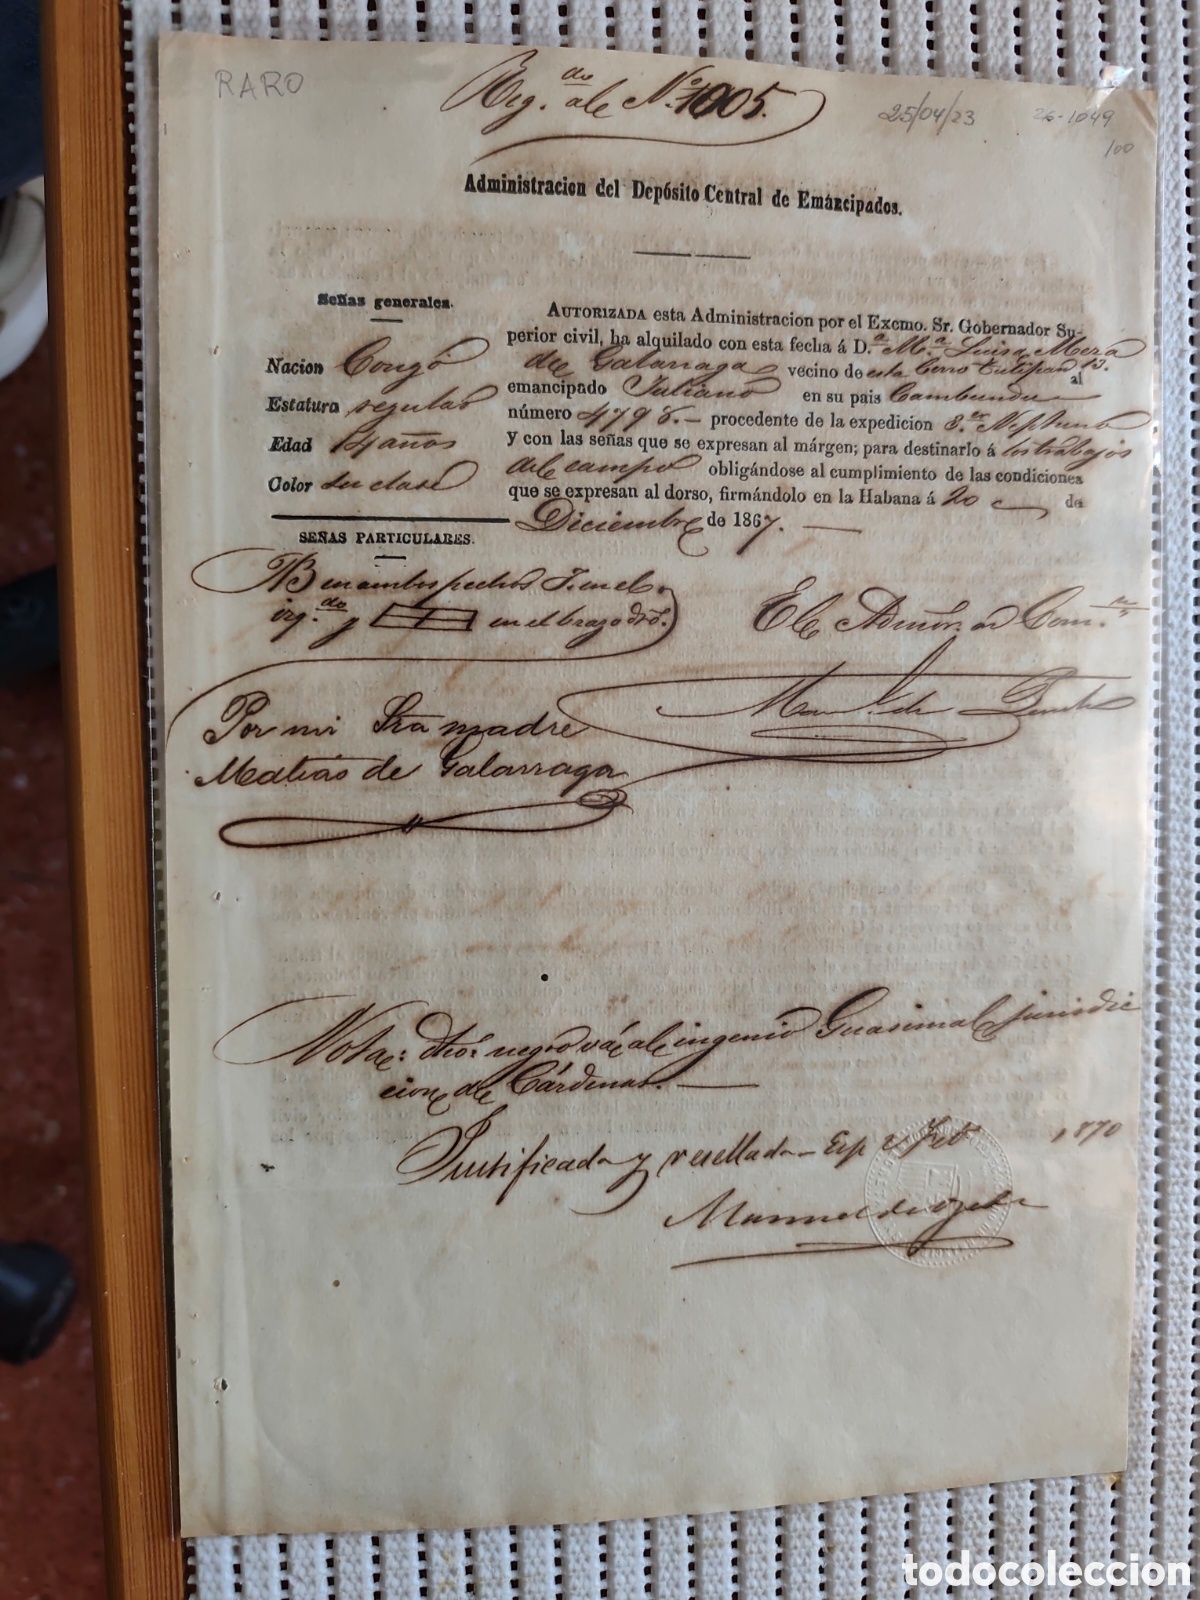 RARO
Reg.do al N.º 1005.
25/04/23
26-1049
100
Administracion del Depósito Central de Emancipados.
Señas generales.
Nacion Congó
Estatura regular
Edad 14 años
Color su clase
SEÑAS PARTICULARES.
AUTORIZADA esta Administracion por el Excmo. Sr. Gobernador Su-
perior civil, ha alquilado con esta fecha á D.a M.a Luisa Mera
de Galarraga vecino de esta Cerro Tulipan 13. al
emancipado Juliano en su pais Cambundu
número 4798.- procedente de la expedicion 3.er Neptuno
y con las señas que se expresan al márgen; para destinarlo á los trabajos
del campo obligándose al cumplimiento de las condiciones
que se expresan al dorso, firmándolo en la Habana á 20 de
Diciembre de 1867.
B en ambos pechos T. en el
izq.do y 4 en el brazo dro.
El Admor. en Com.
Por mi Sra madre
Matias de Galarraga
Nota: dho. negro vá al ingenio Guasimal jurisdic
cion de Cárdenas.
Justificada y resellada 1870
Manuel de
todocoleccion